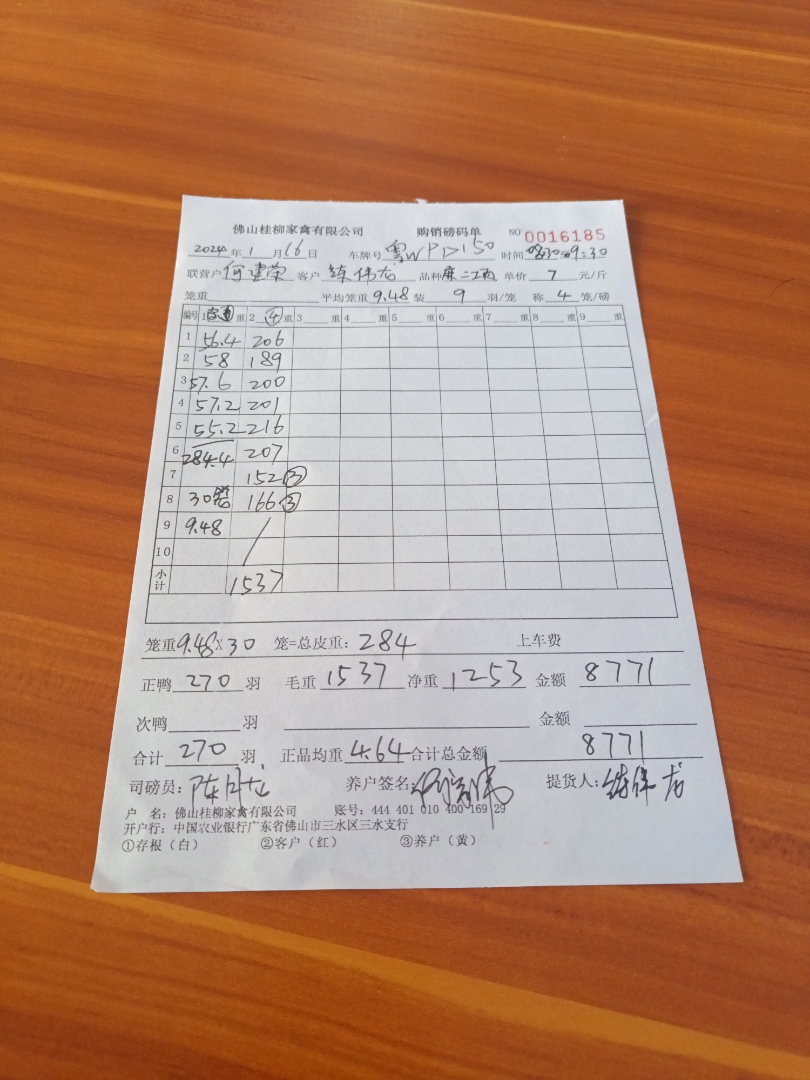 佛山桂柳家禽有限公司 购销磅码单 NO 0016185
2024年1月16日 车牌号 粤WPD150 时间 0830-09:30
联营户 何建荣 客户 练伟龙 品种 麻二 单价 7 元/斤
笼重 平均笼重 9.48 装 9 羽/笼 称 4 笼/磅
编号 1 重 2 ④ 重 3 重 4 重 5 重 6 重 7 重 8 重 9 重
1 56.4 206
2 58 189
3 57.6 200
4 57.2 201
5 55.2 216
6 284.4 207
7 152 ③
8 30笼 166 ③
9 9.48 /
10
小计 1537
笼重 9.48 X 30 笼=总皮重: 284 上车费
正鸭 270 羽 毛重 1537 净重 1253 金额 8771
次鸭 羽 金额
合计 270 羽 正品均重 4.64 合计总金额 8771
司磅员: 养户签名: 提货人: 练伟龙
户 名: 佛山桂柳家禽有限公司 账号: 444 401 010 400 169 29
开户行: 中国农业银行广东省佛山市三水区三水支行
①存根(白) ②客户(红) ③养户(黄)